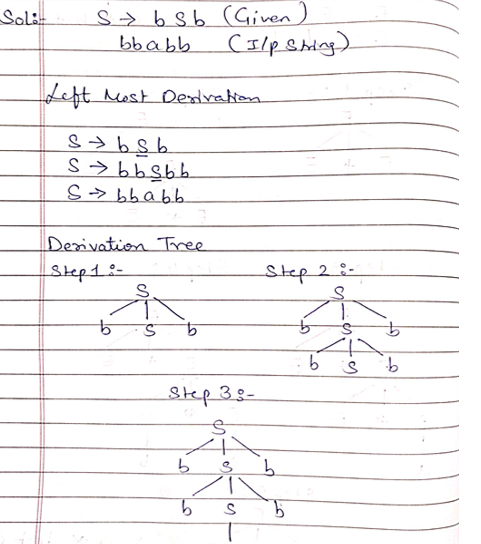 Sol:- S → b S b (Given)
bbabb (I/p String)
Left Most Derivation
S → b S b
S → b b S b b
S → b b a b b
Derivation Tree
Step 1 :- Step 2 :-
S S
b S b b S b
b S b
Step 3 :-
S
b S b
b S b